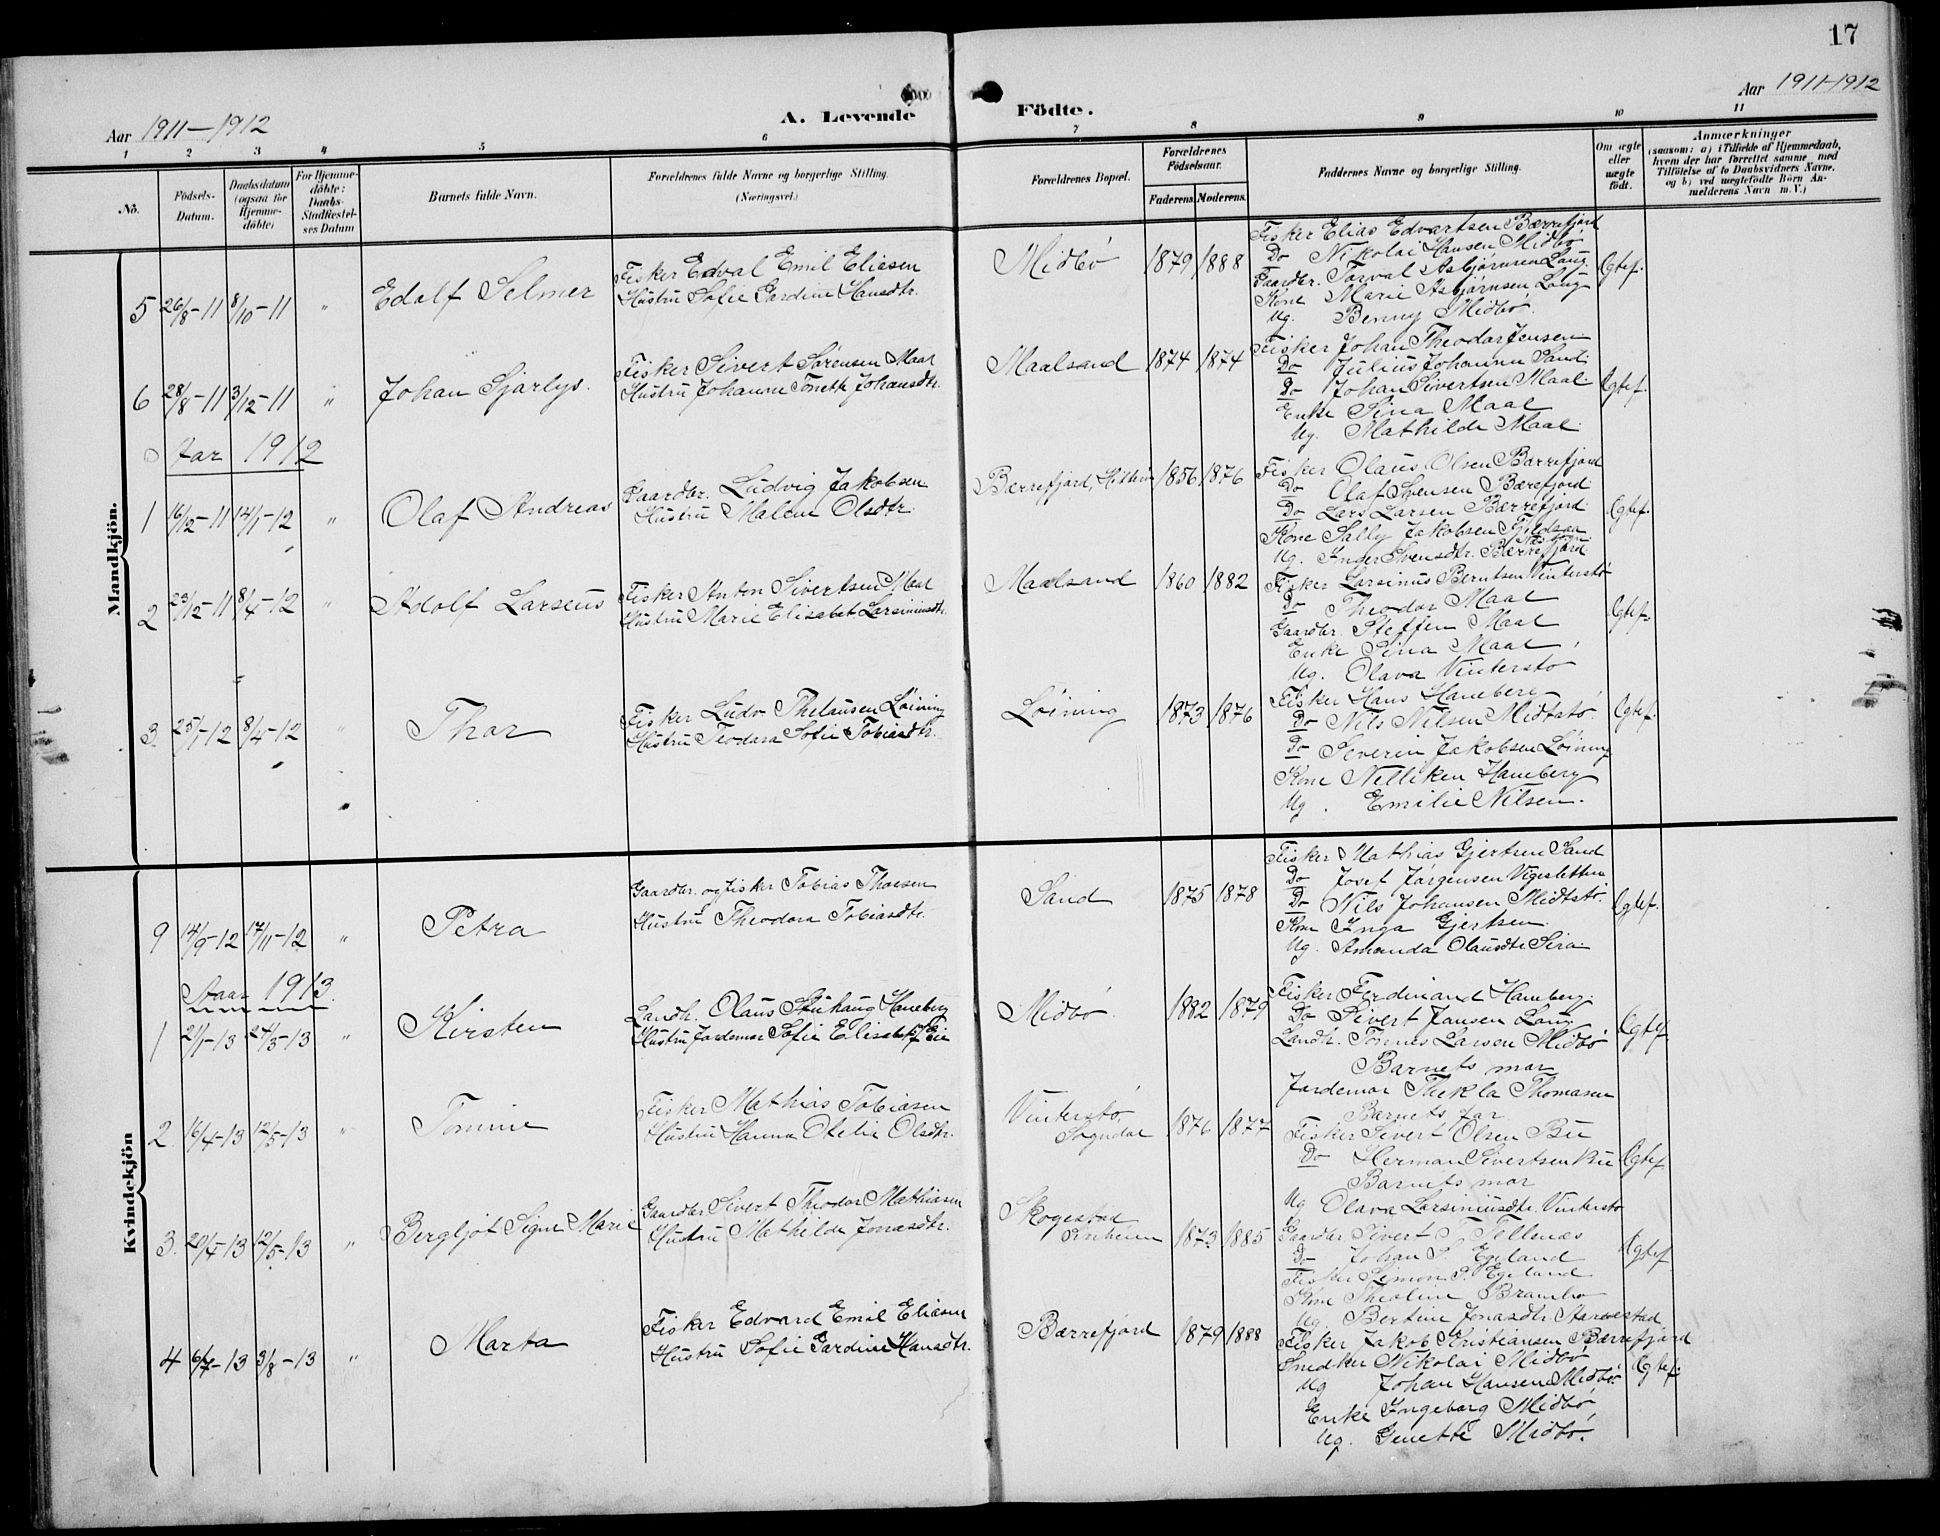 17
Aar 1911-1912
A. Levende Födte.
Aar 1911-1912
1 2 3 4 5 6 7 8 9 10 11
No.
Födsels-Datum.
Daabsdatum (ogsaa for Hjemme-döbte)
For Hjemme-döbte: Daabs-Stadfæstel-ses Datum
Barnets fulde Navn.
Forældrenes fulde Navne og borgerlige Stilling. (Næringsvei.)
Forældrenes Bopæl.
Forældrenes Födselsaar.
Faderens. Moderens.
Faddernes Navne og borgerlige Stilling.
Om ægte eller uægte födt.
Anmærkninger
(saasom: a) i Tilfælde af Hjemmedaab,
hvem der har forrettet samme med
Tilföielse af to Daabsvidners Navne,
og b) ved uægtefödte Börn An-
melderens Navn m. V.)
Mandkjön.
5 26/8-11 8/10-11 " Edolf Selmer
Fisker Edval Emil Eliesen
Hustru Sofie Gardine Hansdtr.
Midbö 1879 1888
Fisker Elias Edvartsen Bærrefjord
Do Nikolai Hansen Midbö
Gaardbr. Torval Asbjørnsen Laug
Kone Marie Asbjørnsen, Laug
Ug. Benny Midbö
Ægtef.
6 28/8-11 3/12-11 " Johan Sjarlys.
Fisker Sivert Sørensen Maal
Hustru Johanne Tonette Johansdtr.
Maalsand 1874 1874
Fisker Johan Theodor Jensen
Do Julius Johannes Sand
Do Johan Sivertsen Maal
Enke Sina Maal
Ug. Mathilde Maal.
Ægtef.
Aar 1912
1 16/12-11 14/1-12 " Olaf Andreas
Gaardbr. Ludvig Jakobsen
Hustru Malene Olsdtr.
Bærrefjord, Hitterø 1856 1876
Fisker Olaus Olsen Bærrefjord
Do Olaf Svensen Bærefjord
Do Lars Larsen Bærrefjord
Kone Sally Jakobsen
Ug. Inger Svensdtr. Bærrefjord
Ægtef.
2 23/12-11 8/4-12 " Adolf Larseus
Fisker Anton Sivertsen Maal
Hustru Marie Elisabet Larsiniusdtr.
Maalsand 1860 1882
Fisker Larsinus Berntsen Vinterstø
Do Theodor Maal
Gaardbr. Steffen Maal
Enke Sina Maal
Ug. Olava Vinterstø
Ægtef.
3. 25/1-12 8/4-12 " Thor
Fisker Ludv Thelausen Løining
Hustru Teodara Sofie Tobiasdtr.
Løining 1873 1876
Fisker Hans Haneberg
Do Nils Nilsen Midtstø.
Do Severin Jakobsen Løining
Kone Nilliken Haneberg
Ug. Emilie Nilsen.
Ægtef.
Kvindekjön
9 14/9-12 17/11-12 " Petra
Gaardbr. og fisker Tobias Thorsen
Hustru Theodora Tobiasdtr.
Sand 1875 1878
Fisker Mathias Gjertsen Sand
Do Josef Jørgensen Vigesletten
Do Nils Johansen Midtstø.
Kone Inga Gjertsen
Ug. Amanda Olausdtr Sira
Ægtef.
Aaar 1913.
1 2/1-13 24/3-13 " Kirsten
Landh. Olaus Haneberg
Hustru Jordemor Sofie Elisabet
Midbø. 1882 1879
Fisker Ferdinand Haneberg
Do Sivert Jansen Laug
Landh. Tønnes Larsen Midbø
Barnets mor
Jordemor Thekla Thomasen
Ægtef
2. 16/4-13 12/5-13 " Tomine
Fisker Mathias Tobiasen
Hustru Hanna Otelie Olsdtr.
Vinterstø, Sogndal 1876 1877
Barnets far
Fisker Sivert Olsen Bu
Do Herman Sivertsen Bu
Barnets mor
Ug Olava Larsiniusdtr. Vinterstø
Ægtef
3. 20/4-13 12/5-13 " Bergljot Signe Marie
Gaardbr Sivert Theodor Mathiasen
Hustru Mathilde Jonasdtr.
Skogestad 1873 1885
Gaardbr Sivert T. Tellenæs
Do Johan S. Egeland
Fisker Simon S. Egeland
Kone Theoline Brambo
Ug. Bertine Jonasdtr
Ægtef
4 6/7-13 3/8-13 " Marta
Fisker Edvard Emil Eliesen
Hustru Sofie Gardine Hansdtr.
Bærrefjord 1879 1888
Fisker Jakob Kristiansen Bærrefjord
Snedker Nikolai Midbø
Ug Johan Hansen Midbø.
Enke Ingeborg Midbø
Ug. Genette Midbø.
Ægtef.